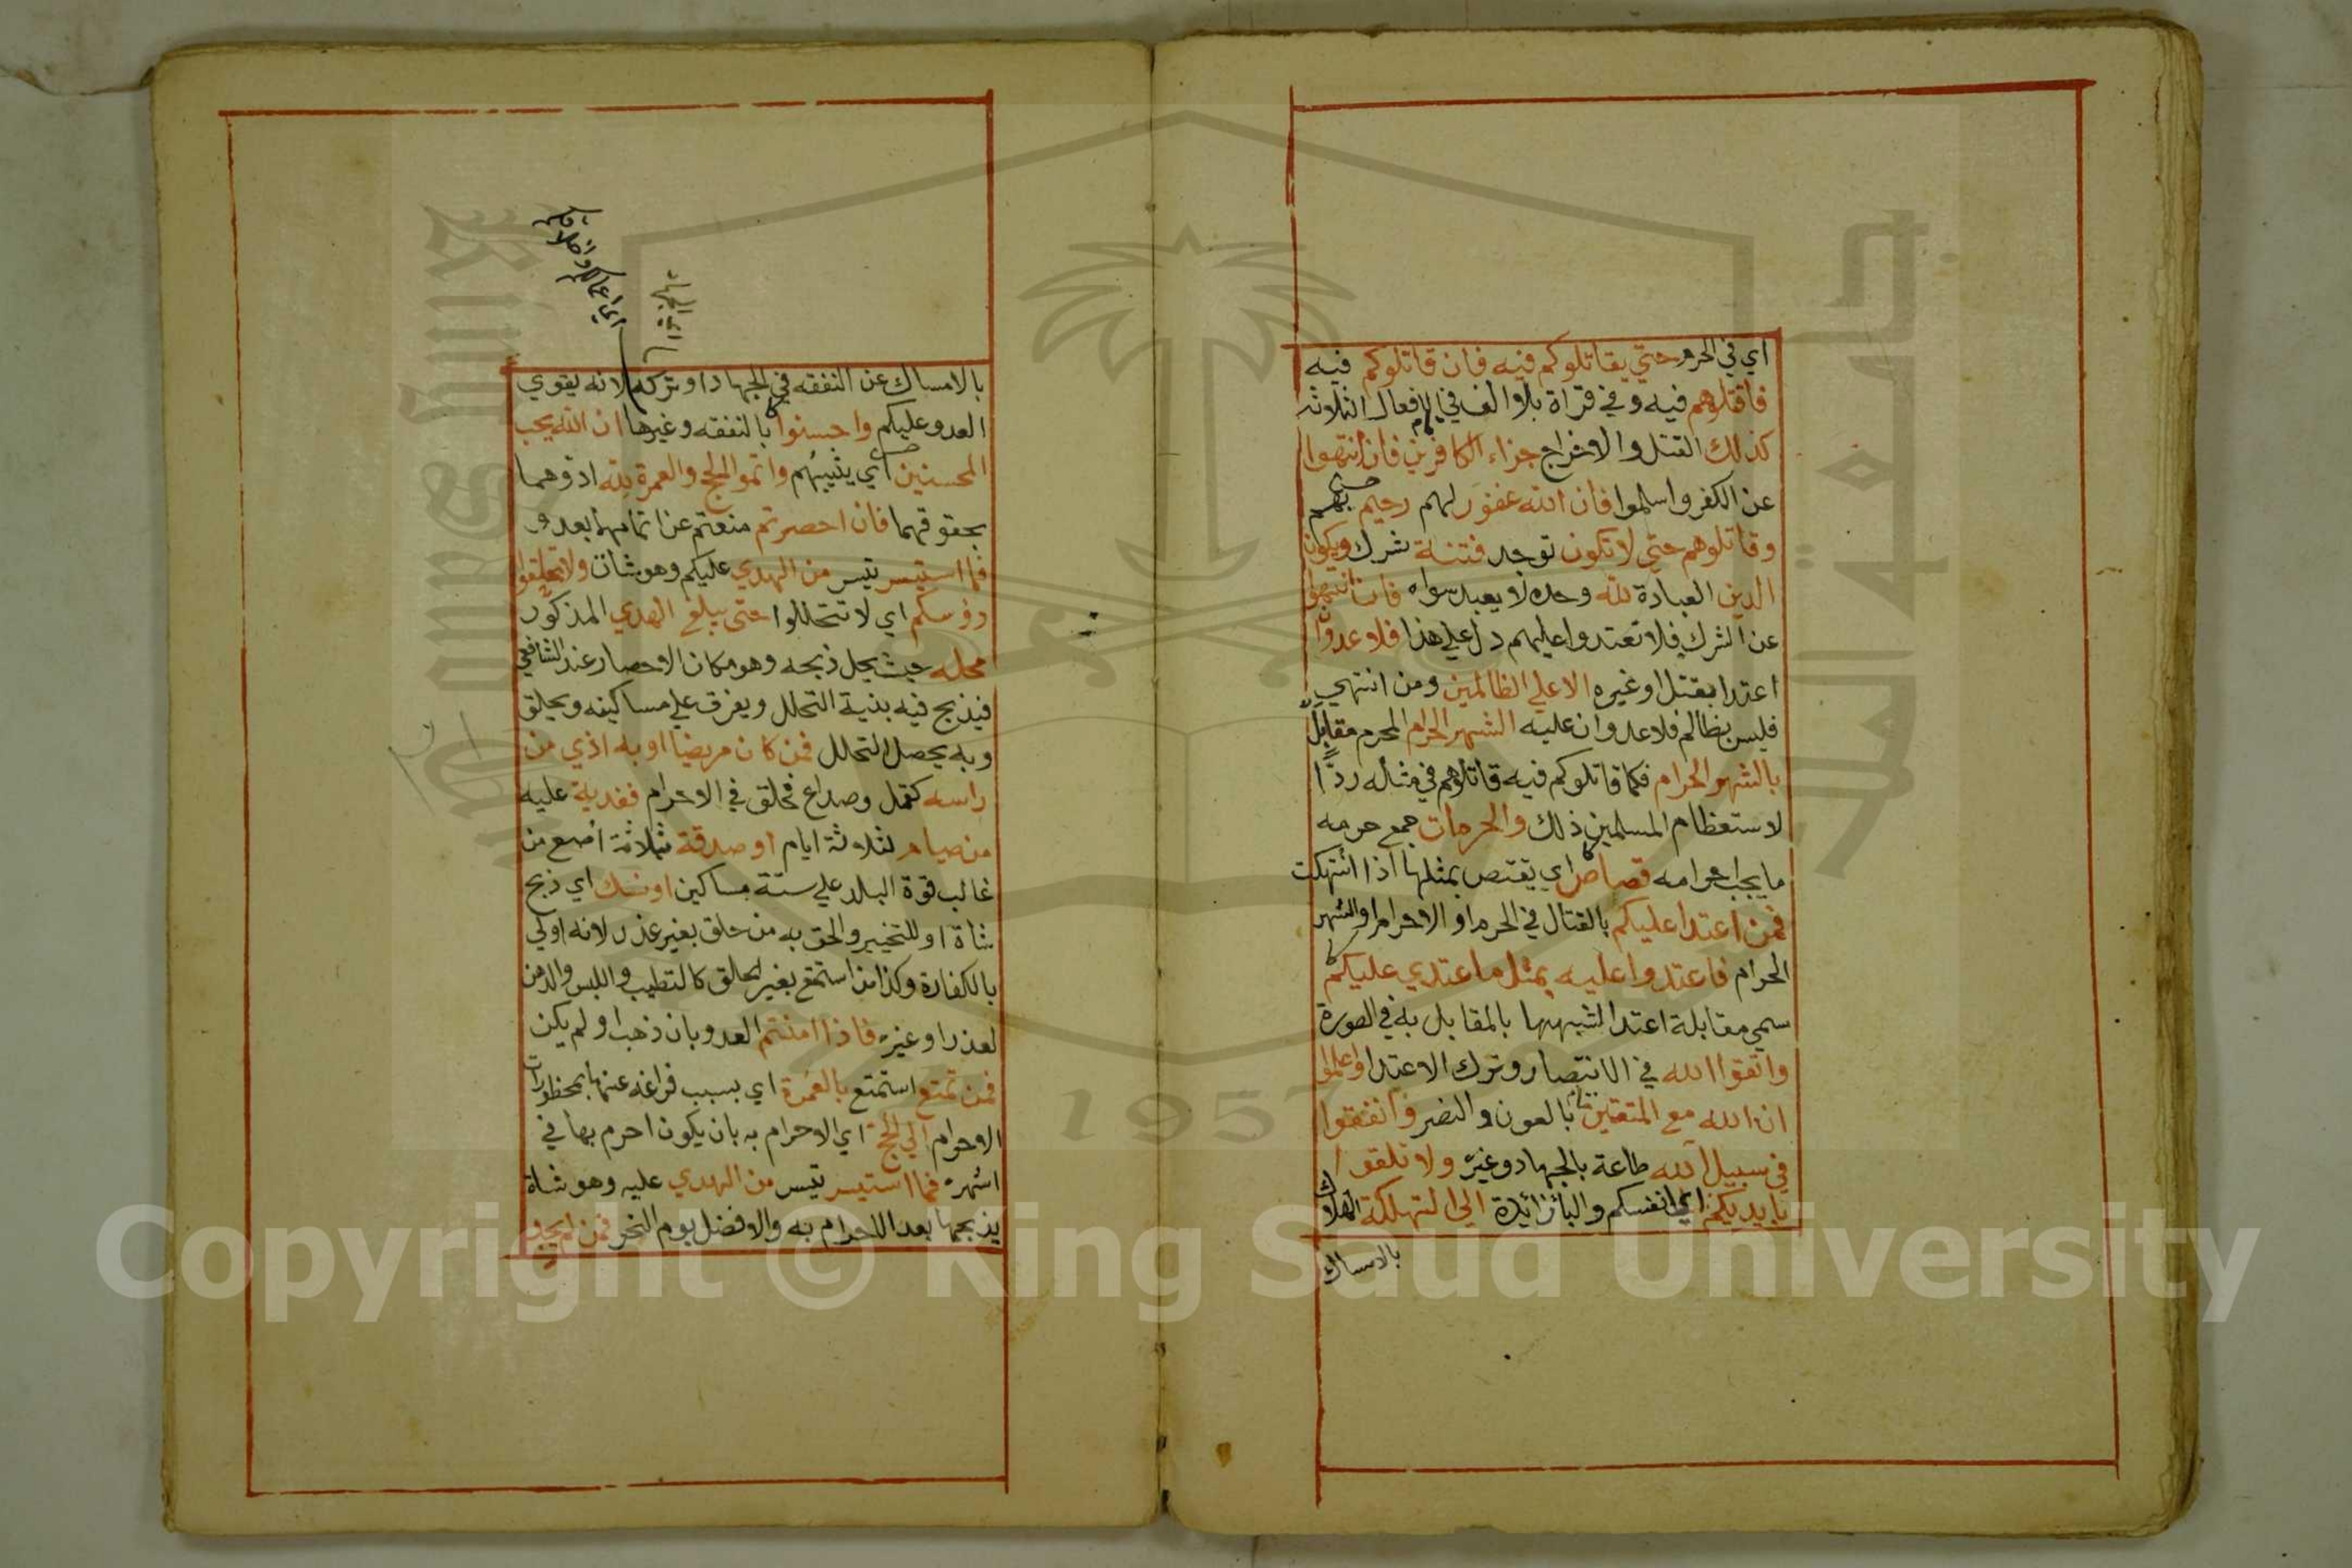 اي في الحرم حتي يقاتلوكم فيه فان قاتلوكم فيه
فاقتلوهم فيه وفي قراة بلا الف في الافعال الثلاثه
كذلك القتل والاخراج جزاء الكافرين فان انتهوا
عن الكفر واسلموا فان الله غفور لهم رحيم بهم
وقاتلوهم حتي لا تكون توجد فتنة شرك ويكون
الدين العبادة لله وحده لا يعبد سواه فان انتهوا
عن الشرك فلا تعتدوا عليهم دل علي هذا فلا عدوان
اعتدا بقتل او غيره الا علي الظالمين ومن انتهي
فليس بظالم فلا عدوان عليه الشهر الحرام المحرم مقابل
بالشهر الحرام فكما قاتلوكم فيه قاتلوهم في مثله ردا
لاستعظام المسلمين ذلك والحرمات جمع حرمه
ما يجب احترامه قصاص اي يقتص بمثلها اذا انتهكت
فمن اعتدا عليكم بالقتال في الحرم او الاحرام او الشهر
الحرام فاعتدوا عليه بمثل ما اعتدي عليكم
سمي مقابلة اعتدا لشبهها بالمقابل به في الصورة
واتقوا الله في الانتصار وترك الاعتدا واعلموا
ان الله مع المتقين بالعون والنصر وانفقوا
في سبيل الله طاعة بالجهاد وغيره ولا تلقوا
بايديكم اي انفسكم والبا زائدة الي التهلكة الهلاك
بالامساك
اي الجهاد
اي اعمالكم واخلاقكم
بالامساك عن النفقه في الجهاد او تركه لانه يقوي
العدو عليكم واحسنوا بالنفقه وغيرها ان الله يحب
المحسنين اي يثيبهم واتموا الحج والعمرة لله ادوهما
بحقوقهما فان احصرتم منعتم عن اتمامها بعدو
فما استيسر تيسر من الهدي عليكم وهو شات ولا تحلقوا
رؤسكم اي لا تتحللوا حتي يبلغ الهدي المذكور
محله حيث يحل ذبحه وهو مكان الاحصار عند الشافعي
فيذبح فيه بنية التحلل ويفرق علي مساكينه ويحلق
وبه يحصل التحلل فمن كان مريضا او به اذي من
راسه كقمل وصداع فحلق في الاحرام ففدية عليه
من صيام لثلاثة ايام او صدقة بثلاثة اصع من
غالب قوة البلد علي ستة مساكين او نسك اي ذبح
شاة او للتخيير والحق به من حلق بغير عذر لانه اولي
بالكفارة وكذا من استمتع بغير الحلق كالتطيب واللبس والدهن
لعذر او غيره فاذا امنتم العدو بان ذهب او لم يكن
فمن تمتع استمتع بالعمرة اي بسبب فراغه عنها بمحظورات
الاحرام الي الحج اي الاحرام به بان يكون احرم بها في
اشهره فما استيسر تيسر من الهدي عليه وهو شاة
يذبحها بعد الاحرام به والافضل يوم النحر فمن لم يجد
1957
Copyright © King Saud University